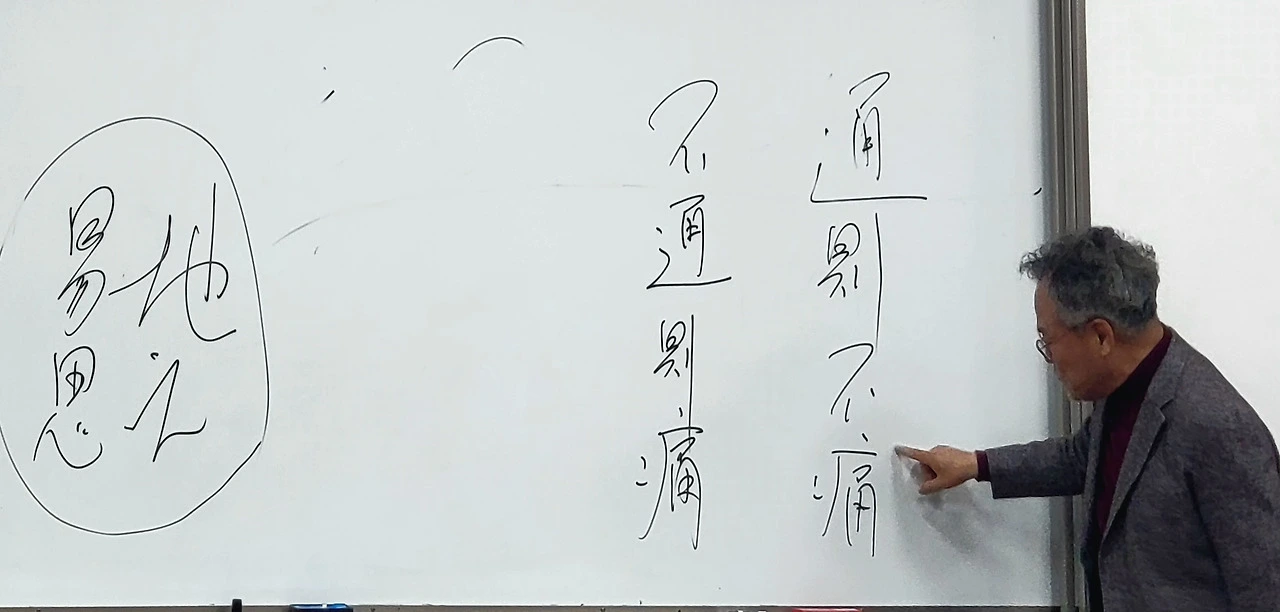 通則不痛
不通則痛
易地
思之